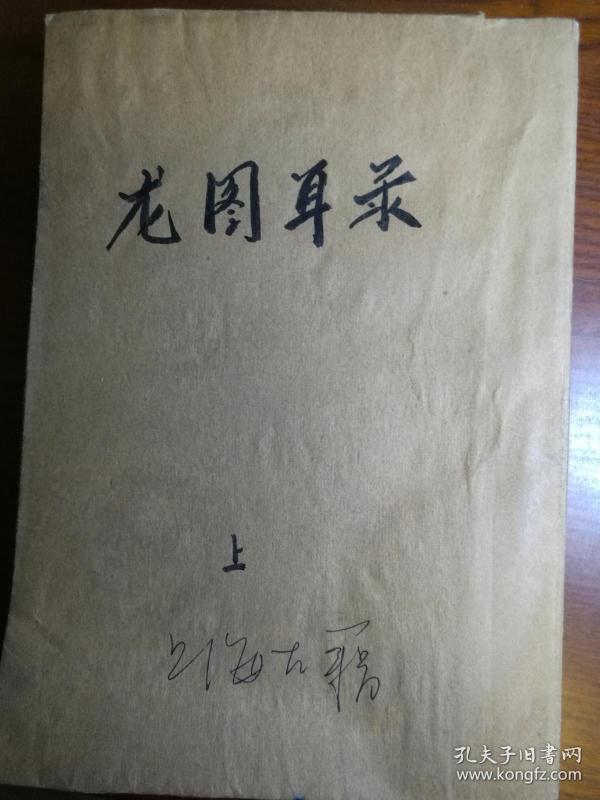 龙图耳录
上
上海古籍
孔夫子旧书网
www.kongfz.com